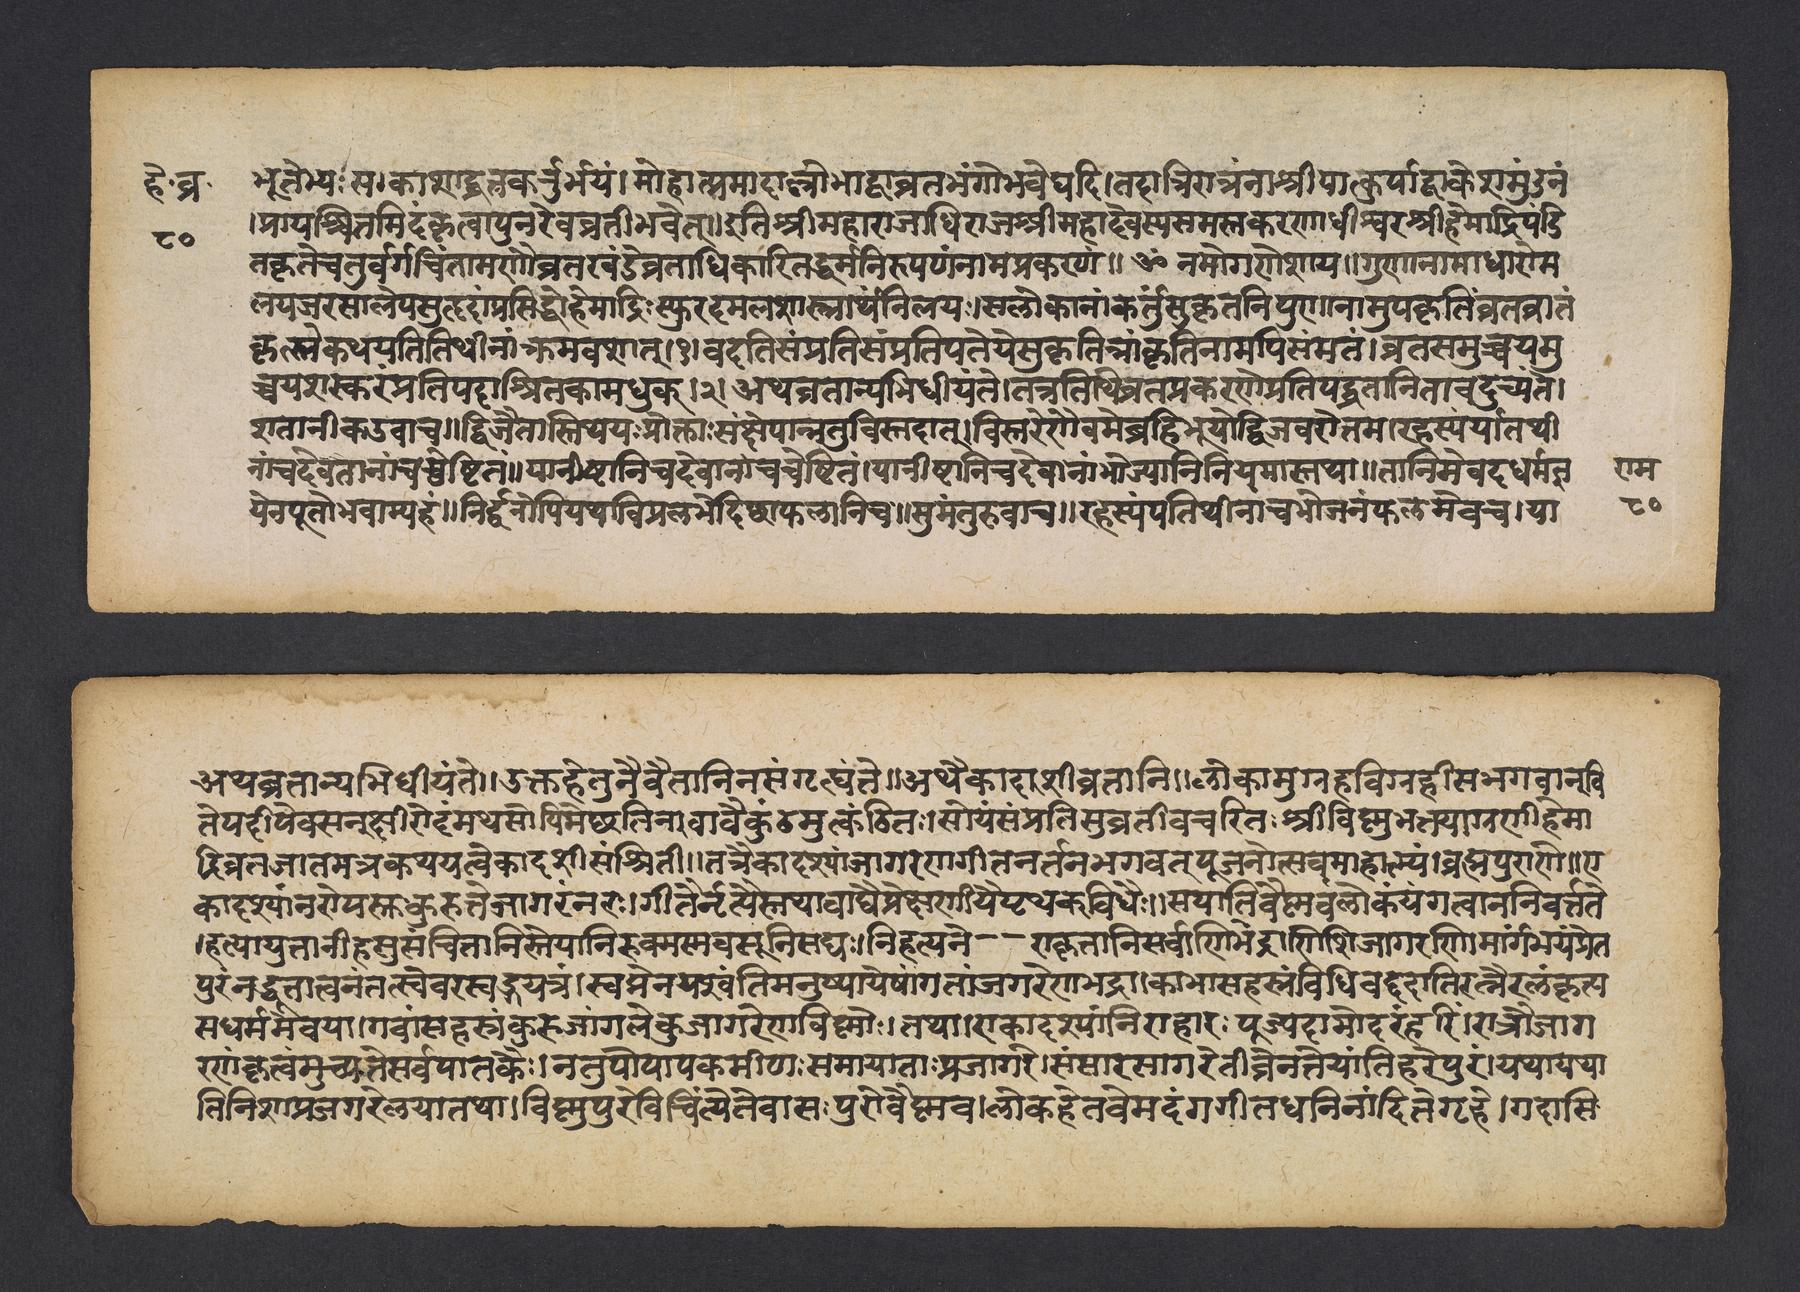 हे.व्र.
८०
भूतेभ्यः सकाशाद्व्रतकर्त्तुर्भयं। मोहात्प्रमादाल्लोभाद्वाव्रतभंगोभवेद्यदि। तदात्रिरात्रंनाश्नीयात्कुर्याद्वाकेशमुंडनं
।प्रायश्चित्तमिदंकृत्वापुनरेवव्रतीभवेत्॥इतिश्रीमहाराजाधिराजश्रीमहादेवस्यसमस्तकरणाधीश्वरश्रीहेमाद्रिपंडि
तकृतेचतुर्वर्गचिंतामणौव्रतखंडेव्रताधिकारितद्धर्मनिरूपणंनामप्रकरणं॥ ॐ नमोगणेशाय॥गुणानामाधारोम
लयजरसालेपसुहृदांप्रसिद्धोहेमाद्रिः स्फुरदमलशास्त्रार्थनिलयः।सलोकानांकर्तुंसुकृतनिपुणानामुपकृतिंव्रतव्रातं
कृत्स्नंकथयतितिथीनांक्रमवशात्।१। वदतिसंप्रतिसंप्रतिपतेयेसुकृतिनांकृतिनामपिसंमतं।व्रतसमुच्चयमु
च्चयशस्करंप्रतिपदाश्रितकामधुक्।२। अथव्रतान्यभिधीयंते।तत्रतिथिव्रतप्रकरणेप्रतिपद्व्रतानितावदुच्यंते।
शतानीकउवाच॥द्विजैतास्तिथयः प्रोक्ताः संक्षेपान्नतुविस्तरात्।विस्तरेणैवमेब्रूहिभूयोद्विजवरोत्तम।रहस्यंयातिथी
नांचदेवतानांचचेष्टितं॥ यानीष्टानिचदेवानांचचेष्टितं।यानीष्टानिचदेवानांभोज्यानिनियमास्तथा॥तानिमेवदधर्मज्ञ
येनपूतोभवाम्यहं॥निर्द्वनोपियथाविप्रलभेदिष्टफलानिच॥सुमंतुरुवाच॥रहस्यंयतिथीनांचभोजनंफलमेवच।या
राम
८०
अथव्रतान्यभिधीयंते॥उक्तहेतुनैवैतानिनसंगृह्यंते॥अथैकादशीव्रतानि॥लोकामुग्रहविग्रहीसभगवान्वि
तेपदीपेवसनूक्षीरोदंमथसोपिमेष्टतिनवावैकुंठमुत्कंठितः।सोयंसंप्रतिसुव्रतीवचरितः श्रीविष्णुभत्तयाग्रणीहेमा
द्रिव्रतजातमत्रकथयत्वेकादशीसंश्रिती॥तत्रैकादश्यांजागरेणगीतनर्तनभगवत्पूजनोत्सवमाहात्म्यं।ब्रह्मपुराणे॥ए
कादश्यांनरोयस्तुकुरुतेजागरंनरः।गीतैर्नृत्यैस्तथावाद्यैप्रेक्षणीयैपृथक्विधैः।सयातिवैष्णवंलोकंयंगत्वाननिवर्त्तते
।हत्यायुतानीहसुसंचितानिस्तेयानिरुक्मस्मवसूनिसद्यः।निहत्यने-- एकृतानिसर्वाणिभद्राणिशिजागरणि।मार्गंभयंप्रेत
पुरंनदूतातत्वनंतत्स्वेवरखड्गयत्रं।स्वप्नेनपश्यंतिमनुष्यायेषांगतांजगरेणभद्रा।काभासहस्रंविधिवद्ददातिरत्नैरलंकृत्य
सधर्ममेवया।गवांसहस्रंकुरुजांगलेकुजागरेणविष्णोः।तथा।एकादश्यांनिराहारः पूज्यदामोदरंहरिं।रात्रौजाग
रणंकृत्वंमुच्यतेसर्वपातकैः।नतुपोपापकर्मीणः समायाताः प्रजागरे।संसारसागरेतीर्त्नेनतेयांतिहरेपुरं।यथायथा
तिनिशाप्रजगरेलयातथा।विष्णुपुरेविचिंत्येतेवासः पुरोवैष्णव।लोकहेतवेमदंगगीतधनिनादितेगृहे।गदासि